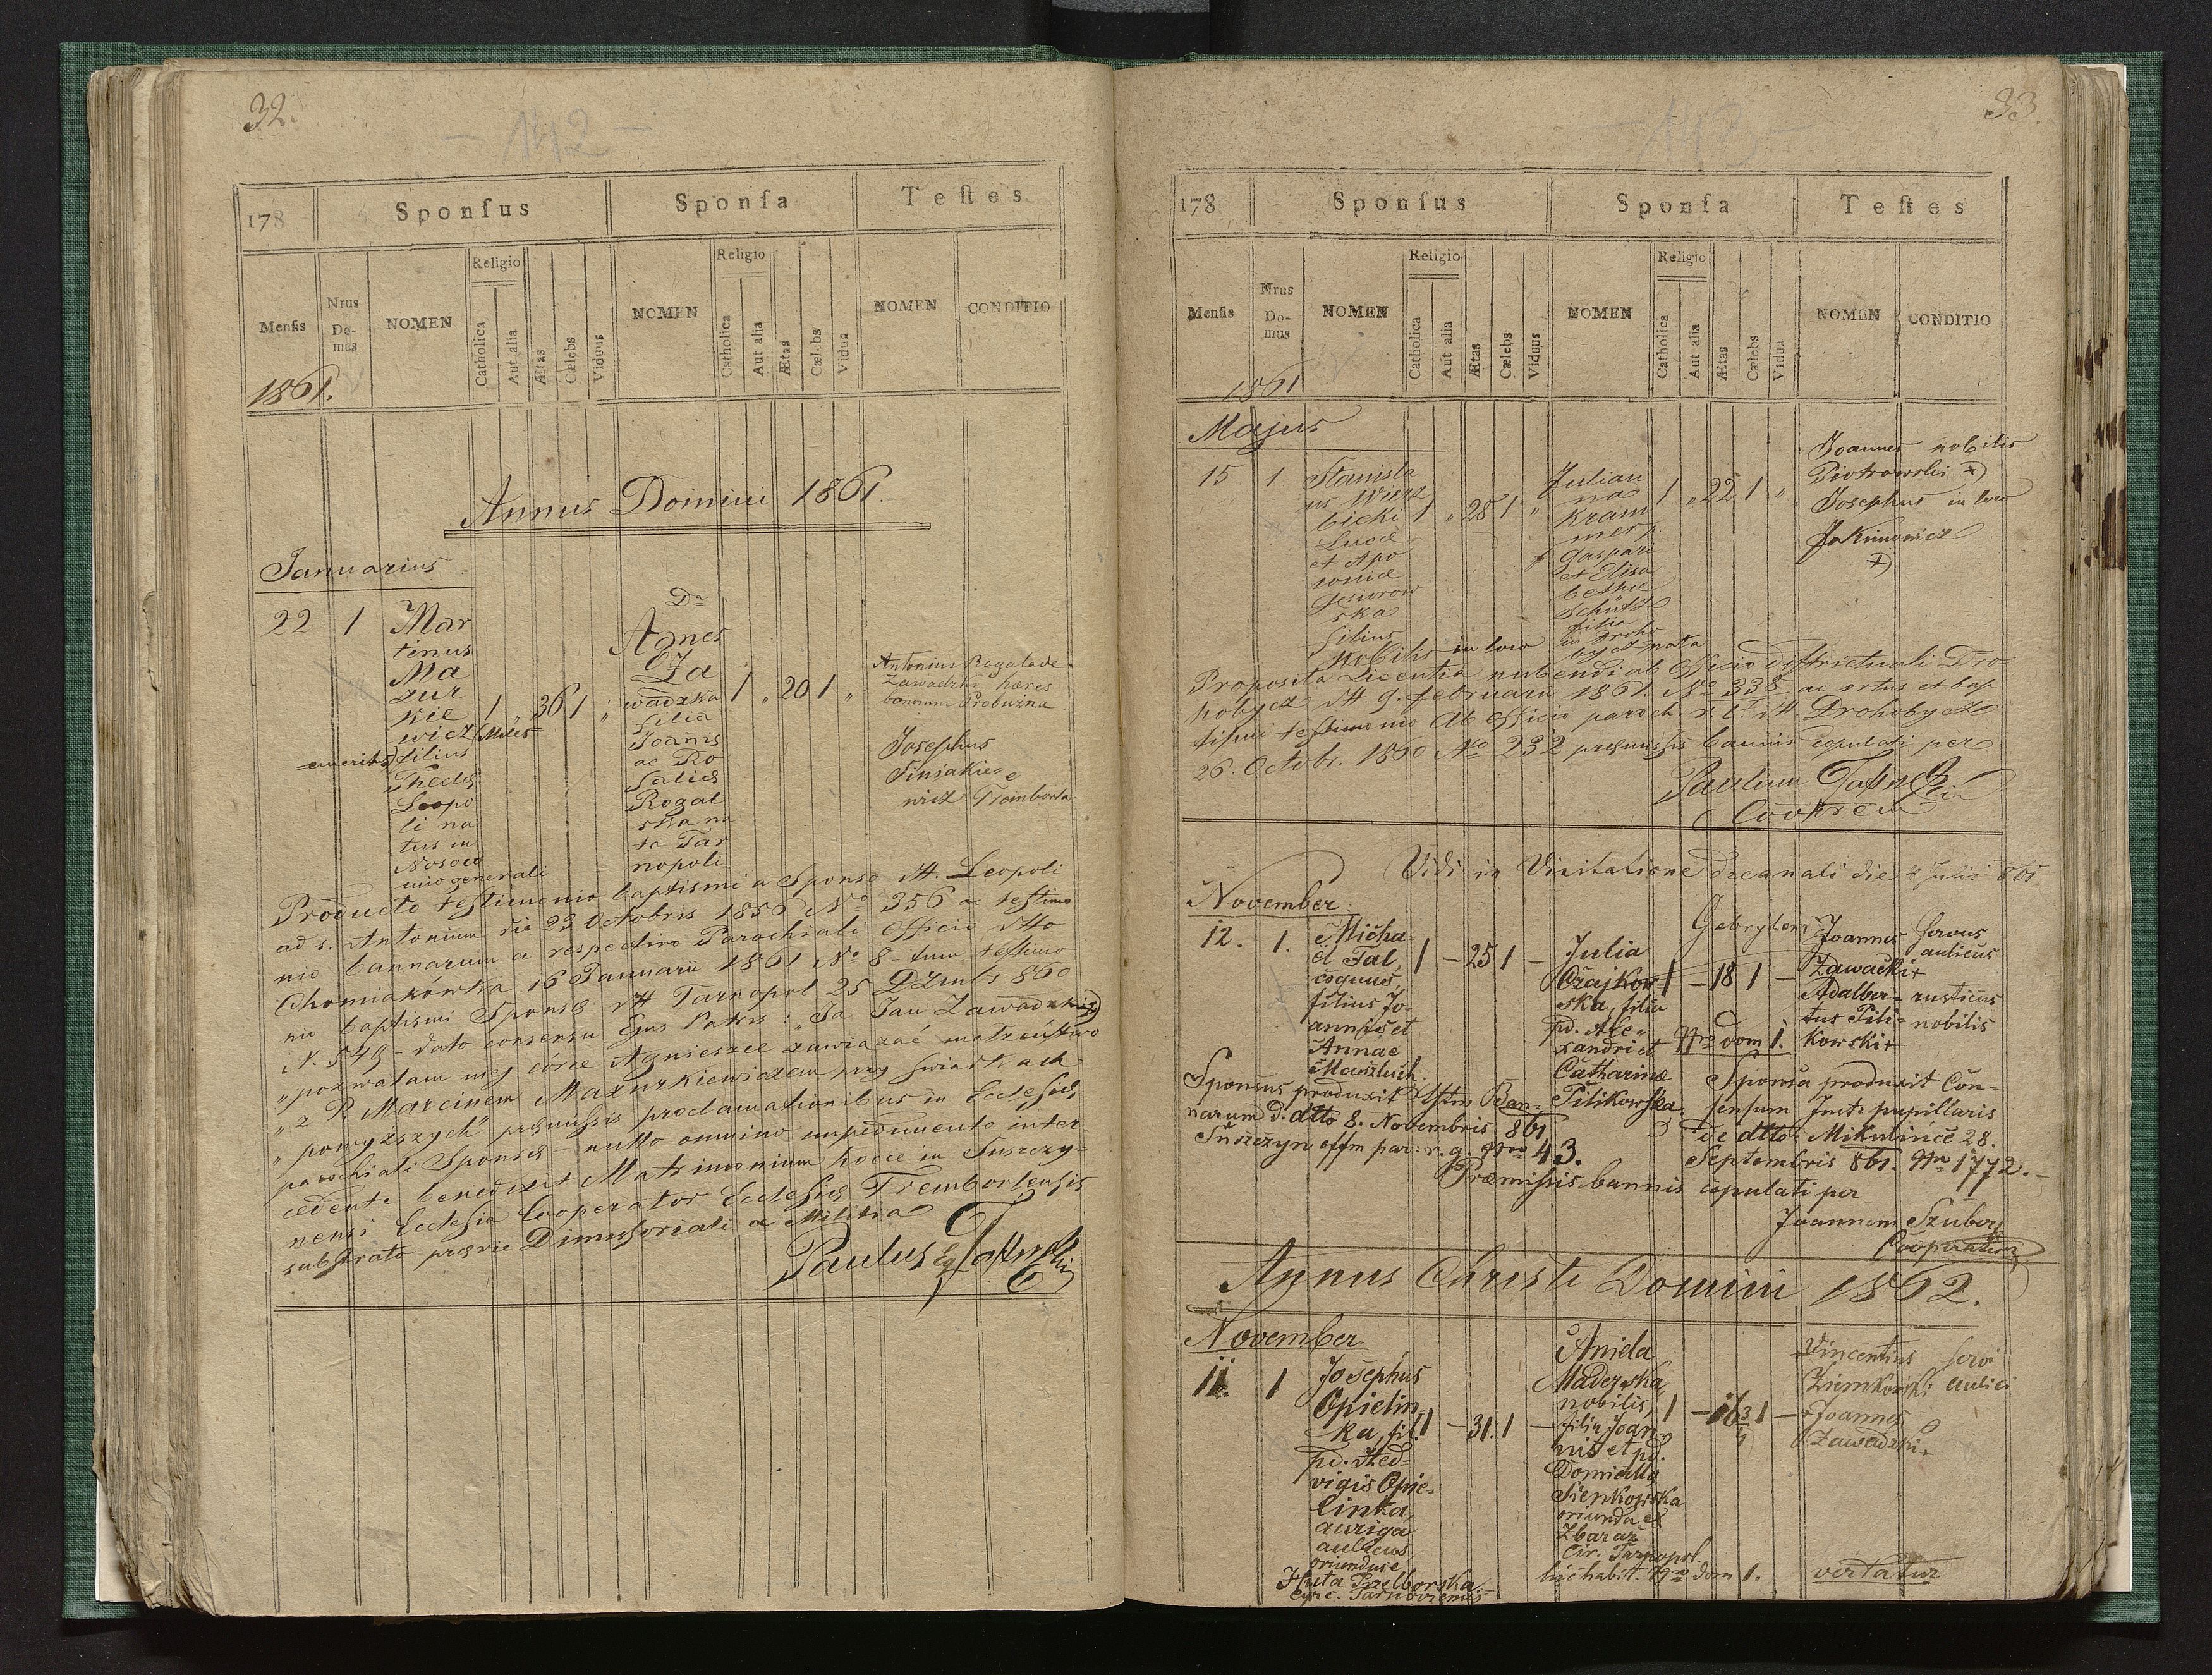 32.
- 142 -
178
Sponſus
Sponſa
Teſtes
Menſis
Nrus Do-mus
NOMEN
Religio
Catholica
Aut alia
Ætas
Cælebs
Viduus
NOMEN
Religio
Catholica
Aut alia
Ætas
Cælebs
Vidua
NOMEN
CONDITIO
1861.
Annus Domini 1861.
Januarius
22 1
Mar
tinus
Ma
zur
kie
wicz Miles
emeritus filius
Theclæ
Leopo
li na
tus in
Nosoco
mio generali
1 „ 36 1 „
Dna
Agnes
Za
wadzka
filia
Joannis
ac Ro
saliæ
Rogal
ska na
ta Tar
nopoli
1 „ 20 1 „
Antonius Rogala de
Zawadzki hæres
bonorum Probużna
Josephus
Siniakie
wicz Trombowla
Producto testimonio baptismi a Sponso dt. Leopoli
ad s. Antonium die 23 Octobris 1856 No 356 ac testimo
nio bannorum a respectivo Parochiali Officio dtto
Chomiakówka 16 Januarii 1861 No 8 - tum testimo
nio baptismi Sponsæ dtt Tarnopol 25 Dzmbr 860
N. 549 - dato consensu Ejus Patris: „Ja Jan Zawadzki
„pozwalam mej córce Agnieszce zawiązać małżeństwo
„z P. Marcinem Mazurkiewiczem przy świadkach
„powyższych" præmissis proclamationibus in Ecclesia
parochiali Sponsæ - nullo omnino impedimento inter-
cedente benedixit Matrimonium hocce in Suszczy-
nensi Ecclesia Cooperator Ecclesiæ Trembowlensis
substrato prævie Dimissoriali a Militia
Paulus
33.
- 143 -
178
Sponſus
Sponſa
Teſtes
Menſis
Nrus Do-mus
NOMEN
Religio
Catholica
Aut alia
Ætas
Cælebs
Viduus
NOMEN
Religio
Catholica
Aut alia
Ætas
Cælebs
Vidua
NOMEN
CONDITIO
1861
Majus
15 1
Stanisla
us Wierz
bicki
Lucæ
et Apo
loniæ
Jesiorow
ska
filius
nobilis in loco
1 „ 28 1 „
Julian
na
Kram
mer p.
Gaspari
et Elisa
bethæ
Schütz
filia
in Droho
bycz nata
1 „ 22 1 „
Joannes nobilis
Piotrowski +)
Josephus in loco
Jakimowicz
+)
Proposita Licentia nubendi ab Officio districtuali Dro
hobycz dtt. 9. februarii 1861 No 338 ac ortus et bap
tismi testimonio ab Officio paroch. r. l. dtt Drohobycz
26. Octobr. 1860 No 232 præmissis bannis copulati per
Paulum
Cooprem
Vidi in Visitatione decanali die 2 Julii 861
November
12. 1.
Micha-
ël Fal,
coquus,
filius Jo-
annis et
Annae
Maszluch.
1 - 25 1 -
Julia
Czajkow-
ska, filia
pd. Ale-
xandri et
Catharinæ
Pilikowska.
1 - 18 1 -
Nro dom 1.
Joannes servus
Zawacki+ aulicus
Adalber- rusticus
tus Pili- nobilis
kowski+
Sponsus produxit Testm Ban-
narum d. dtto 8. Novembris 861
Suszczyn offm par: r. g. Nro 43.
Sponsa produxit Con-
sensum Inst: pupillaris
de dtto Mikulińce 28.
Septembris 861. Nro 1772.-
Præmissis bannis copulati per
Joannem Szuber
Cooperatorem
Annus Christi Domini 1862.
November
11. 1
Josephus
Opielin-
ka, fil.
pd. Hed-
vigis Opie-
linka,
auriga
aulicus
oriundus e
Huta Przelborska
circ. Tarnoviensis
1 - 31. 1 -
Aniela
Maderska,
nobilis,
filia Joan-
nis et pd.
Domicilla
Sienkowska
oriunda ex
Zbaraż
Cir. Tarnopol.
hic habit. Nro dom 1.
1 - 16 3/4 1 -
Vincentius servi
Ziemkowski aulici
+Joannes
Zawadzki+
vertatur